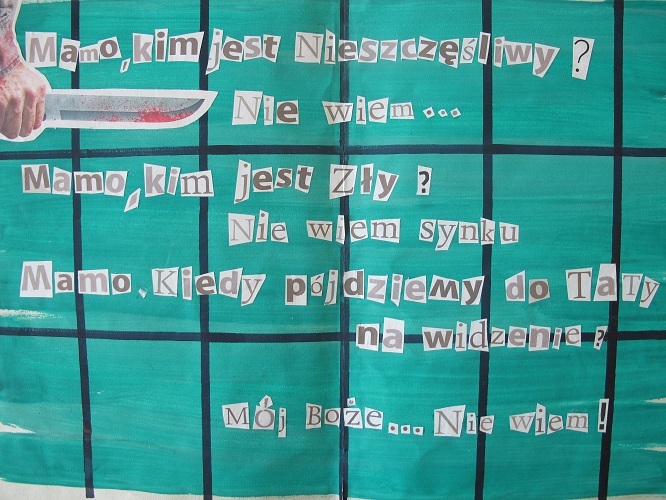 Mamo, kim jest Nieszczęśliwy ?
Nie wiem...
Mamo, kim jest Zły ?
Nie wiem synku
Mamo. Kiedy pójdziemy do TaTy
na widzenie ?
Mój Boże... Nie wiem!